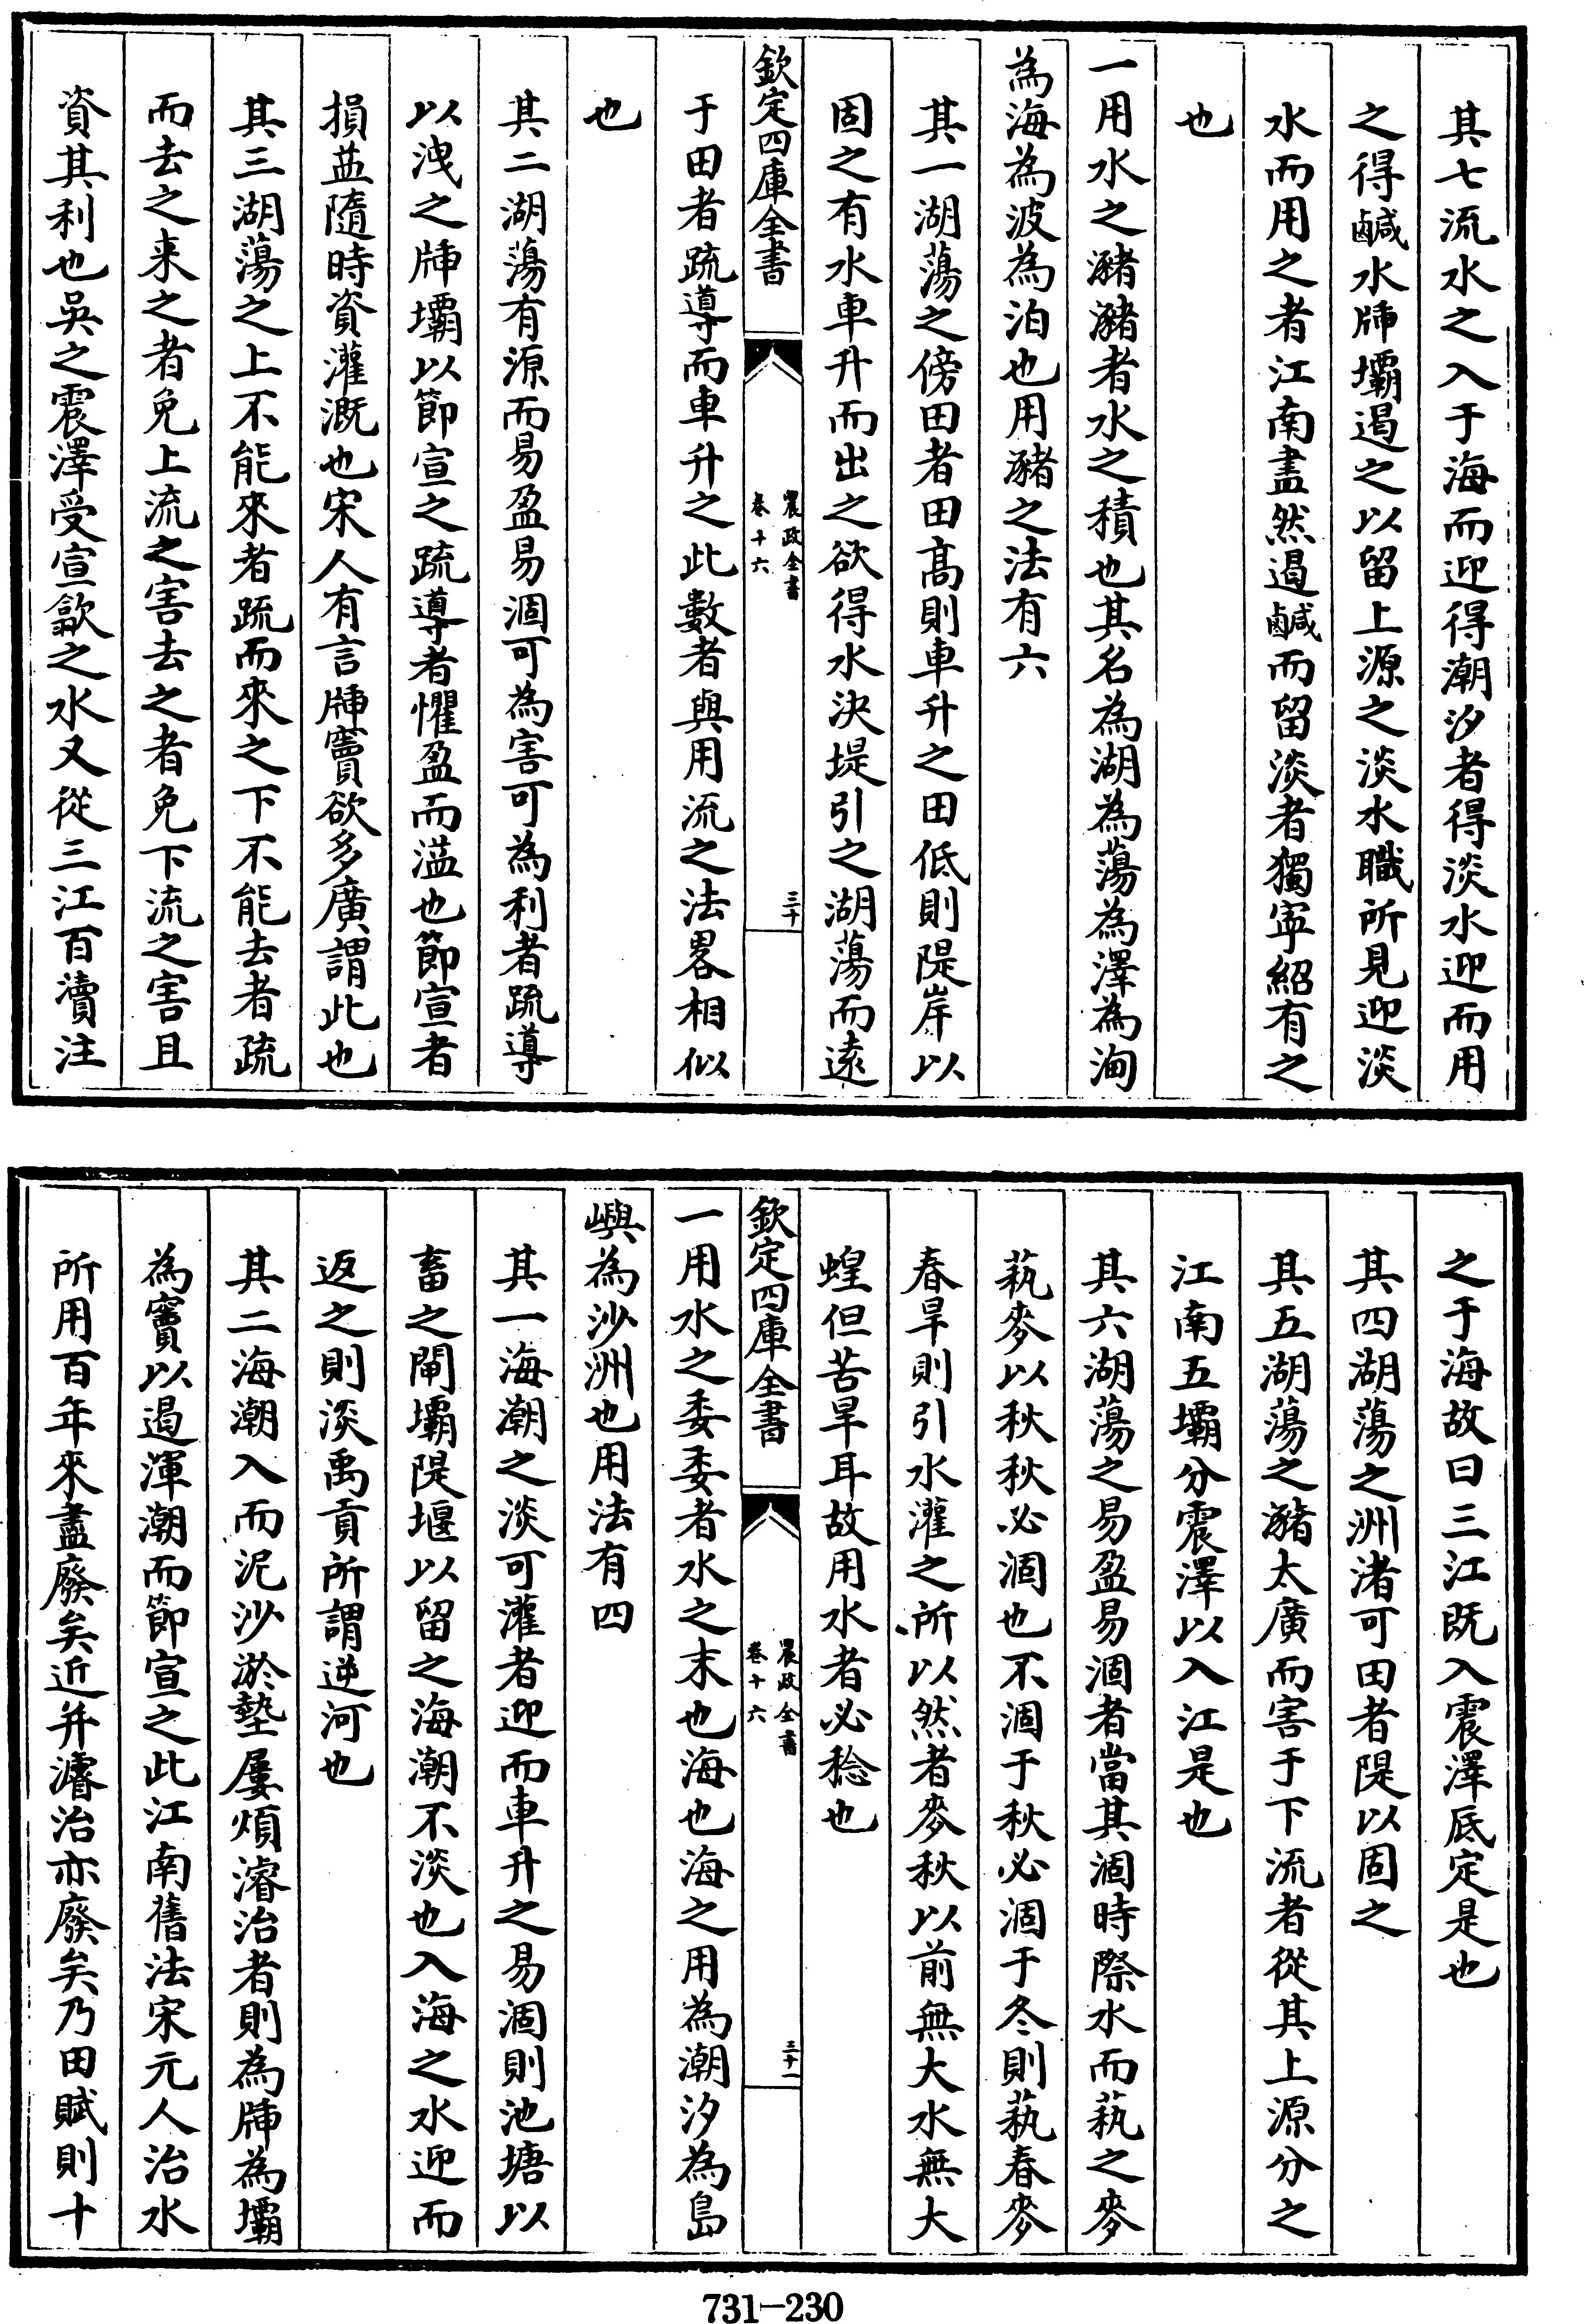 其七流水之入于海而迎得潮汐者得淡水迎而用
之得鹹水牐壩遏之以留上源之淡水職所見迎淡
水而用之者江南盡然遏鹹而留淡者獨寧紹有之
也
一用水之瀦瀦者水之積也其名為湖為蕩為澤為洵
為海為波為泊也用瀦之法有六
其一湖蕩之傍田者田高則車升之田低則隄岸以
固之有水車升而出之欲得水決堤引之湖蕩而遠
欽定四庫全書
農政全書
卷十六
三十
于田者疏導而車升之此數者與用流之法畧相似
也
其二湖蕩有源而易盈易涸可為害可為利者疏導
以洩之牐壩以節宣之疏導者懼盈而溢也節宣者
損益隨時資灌溉也宋人有言牐竇欲多廣謂此也
其三湖蕩之上不能來者疏而來之下不能去者疏
而去之来之者免上流之害去之者免下流之害且
資其利也吳之震澤受宣歙之水又從三江百瀆注
之于海故曰三江既入震澤底定是也
其四湖蕩之洲渚可田者隄以固之
其五湖蕩之瀦太廣而害于下流者從其上源分之
江南五壩分震澤以入江是也
其六湖蕩之易盈易涸者當其涸時際水而蓺之麥
蓺麥以秋秋必涸也不涸于秋必涸于冬則蓺春麥
春旱則引水灌之所以然者麥秋以前無大水無大
蝗但苦旱耳故用水者必稔也
欽定四庫全書
農政全書
卷十六
三十一
一用水之委委者水之末也海也海之用為潮汐為島
嶼為沙洲也用法有四
其一海潮之淡可灌者迎而車升之易涸則池塘以
畜之閘壩隄堰以留之海潮不淡也入海之水迎而
返之則淡禹貢所謂逆河也
其二海潮入而泥沙淤墊屢煩濬治者則為牐為壩
為竇以遏渾潮而節宣之此江南舊法宋元人治水
所用百年來盡廢矣近并濬治亦廢矣乃田賦則十
731-230